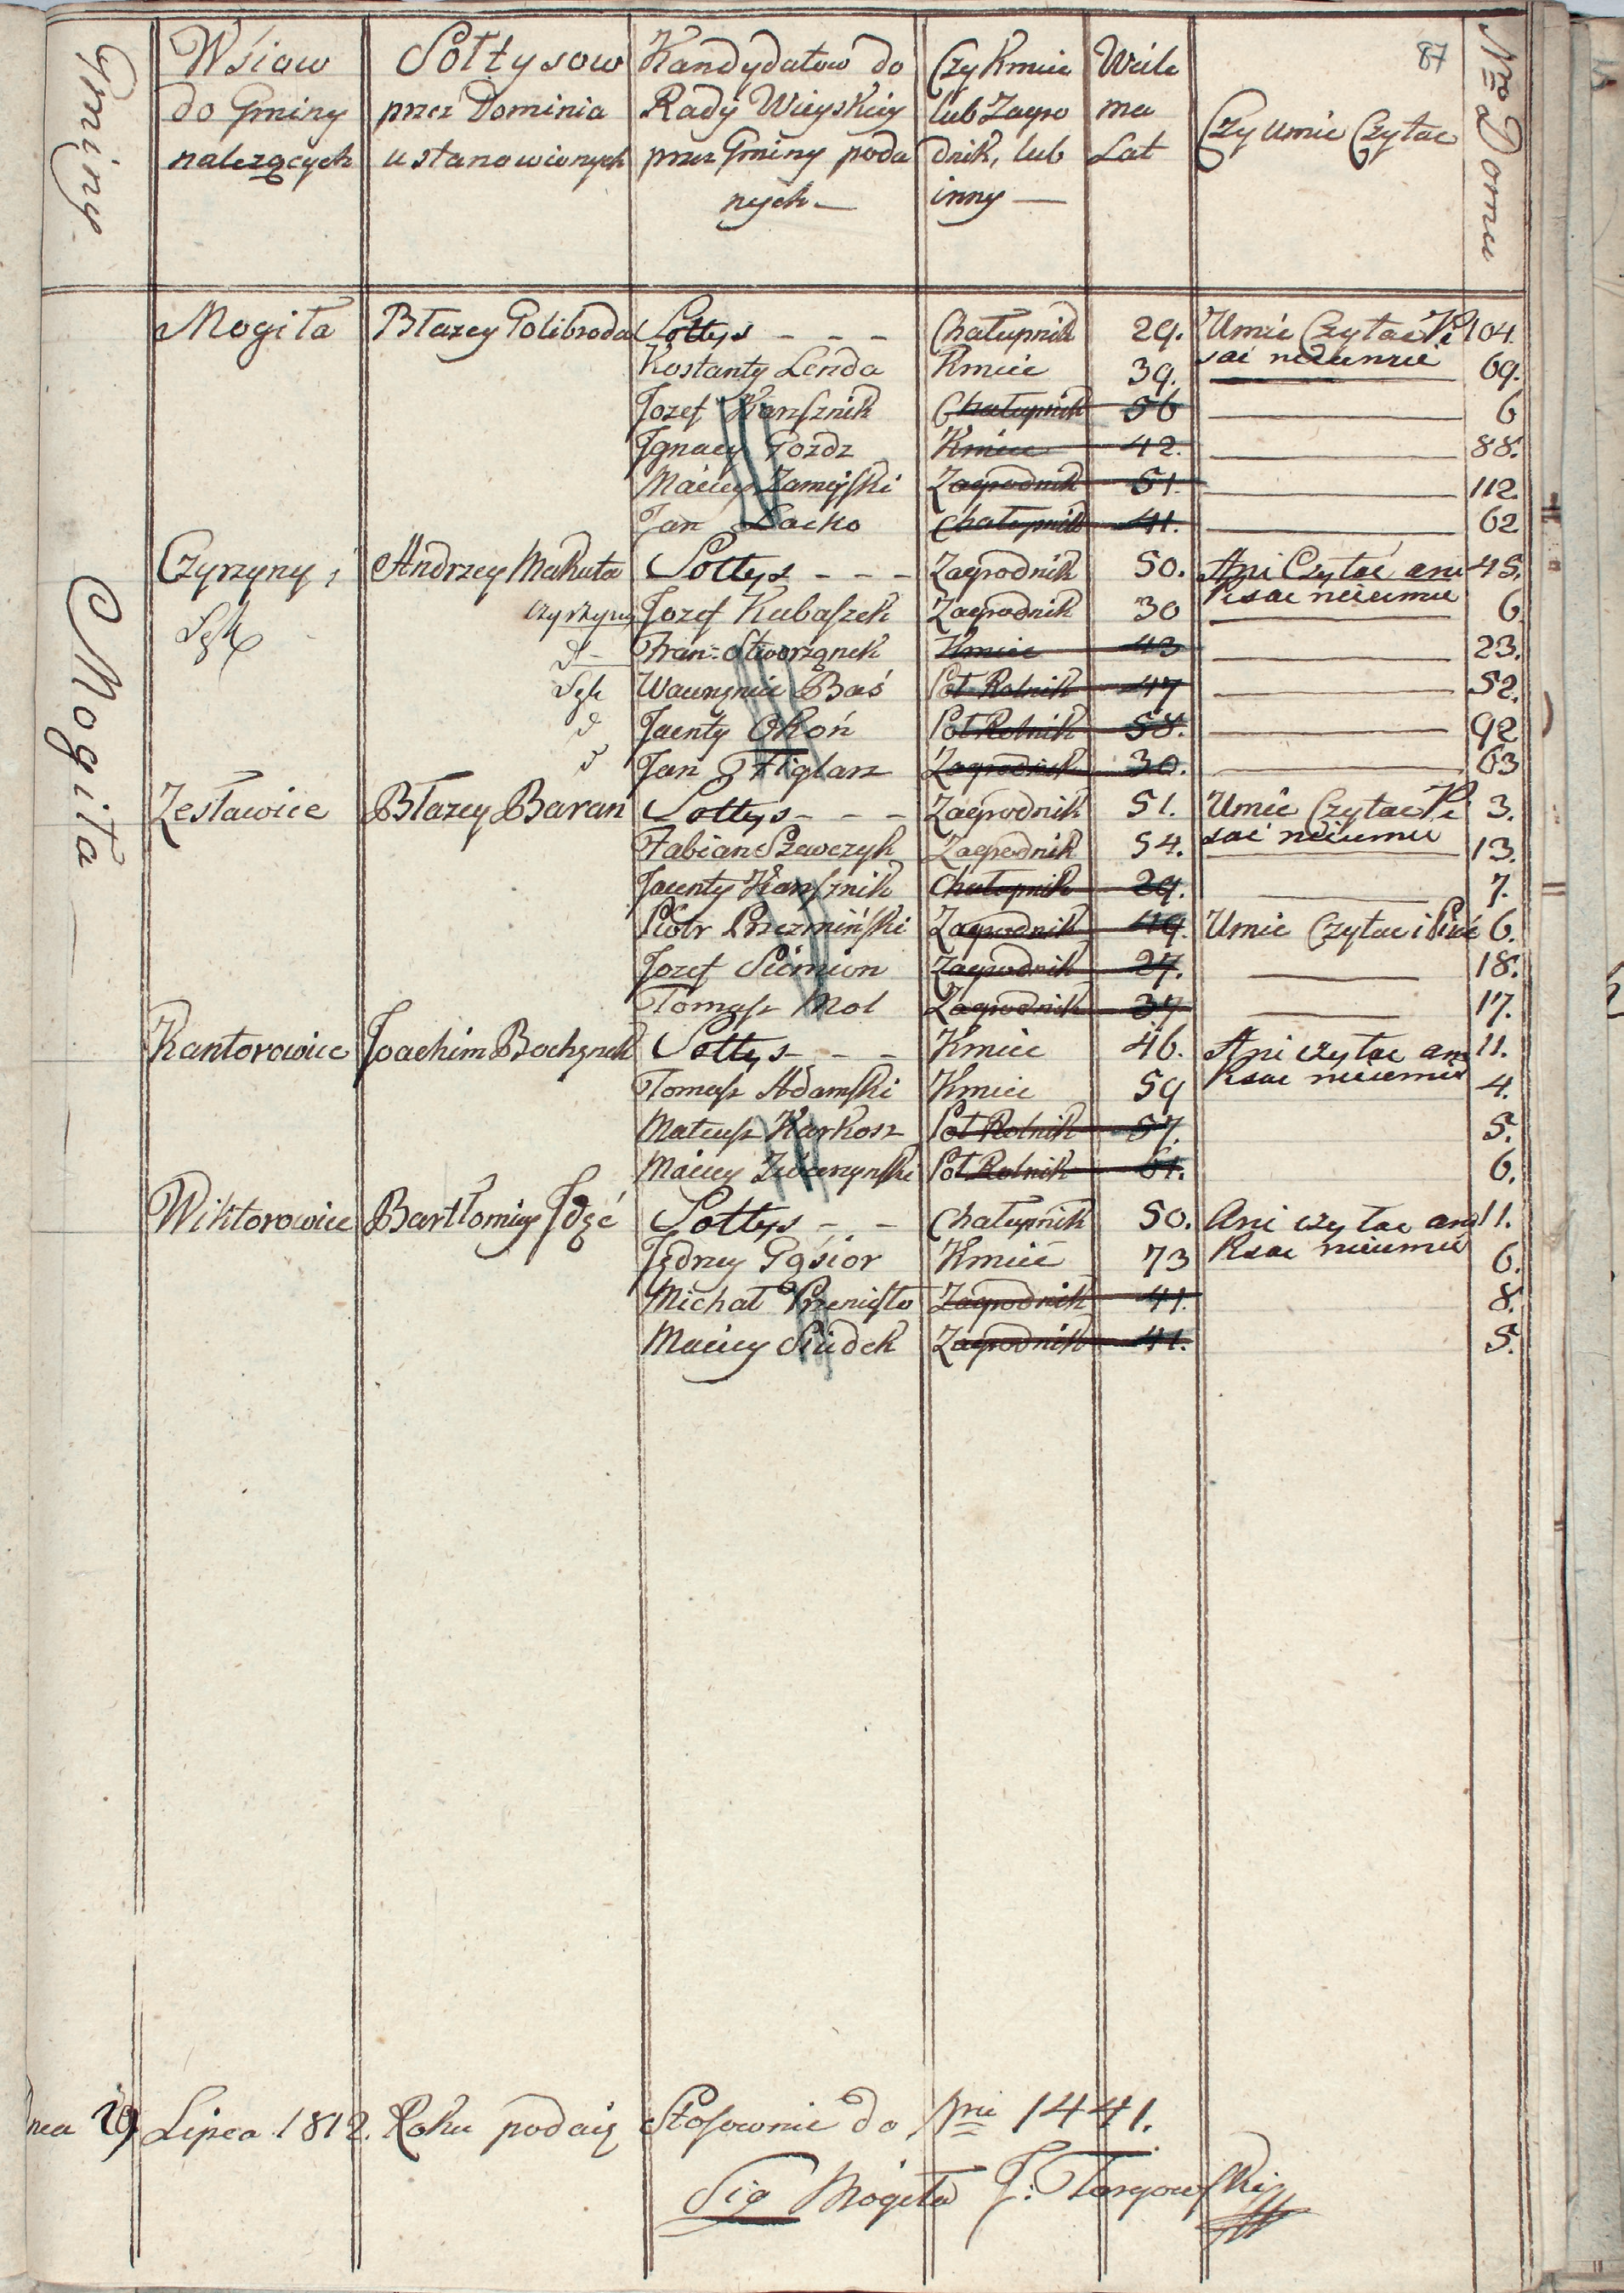 87
Gminy
Wsiow do Gminy nalezących
Sołtysow przez Dominia ustanowionych
Kandydatow do Rady Wieyskiey przez Gminy podanych —
Czy Kmieć lub Zagrodnik, lub inny —
Wiele ma Lat
Czy umie Czytac
Nro Domu
Mogiła
Mogiła Błazey Golibroda Sołtys - - - Chałupnik 29. Umie Czytać Pi 104.
sać nieumie
Kostanty Lenda Kmieć 39. — 69.
Jozef Chałupnik 56 — 6
Ignacy Gozdz Kmiec 42. — 88.
Maciey Zamoyski Zagrodnik 51. — 112.
Jan Łacko Chałupnik 41. — 62
Czyrzyny i Andrzey Makuła Sołtys - - - Zagrodnik 50. Ani Czytać ani 45.
Pisac nieumie
Łęk Czyrzyny Jozef Kubaszek Zagrodnik 30 — 6
d - Fran: Stworząnek Kmiec 43 — 23.
Łęk Wawrzyniec Baś Poł Rolnik 47 — 52.
d Jacenty Okoń Poł Rolnik 58. — 92
d Jan Figlarz Zagrodnik 30. — 63
Zesławice Błazey Baran Sołtys - - - Zagrodnik 51. Umie Czytac Pi 3.
sać nieumie
Fabian Szewczyk Zagrodnik 54. — 13.
Jacenty Chałupnik 29. — 7.
Piotr Przezmiński Zagrodnik 49. Umie Czytac i Pisać 6.
Jozef Siemion Zagrodnik 27. — 18.
Tomasz Mol Zagrodnik 37 — 17.
Kantorowice Joachim Bochynek Sołtys - - - Kmiec 46. Ani czytac ani 11.
Pisac nieumie
Tomasz Adamski Kmiec 59 4.
Mateusz Karkosz Poł Rolnik 57. 5.
Maciey Zwierzynski Poł Rolnik 61. 6.
Wiktorowice Bartłomiey Idzć Sołtys - - Chałupnik 50. Ani czytac ani 11.
Pisac nieumie
Jędrzey Gąsior Kmieć 73 6.
Michał Przenisło Zagrodnik 41. 8.
Maciey Siudek Zagrodnik 41. 5.
nea 29 Lipca 1812. Roku podaię Stosownie do Nri 1441.
Sig Mogiła J: Targowski